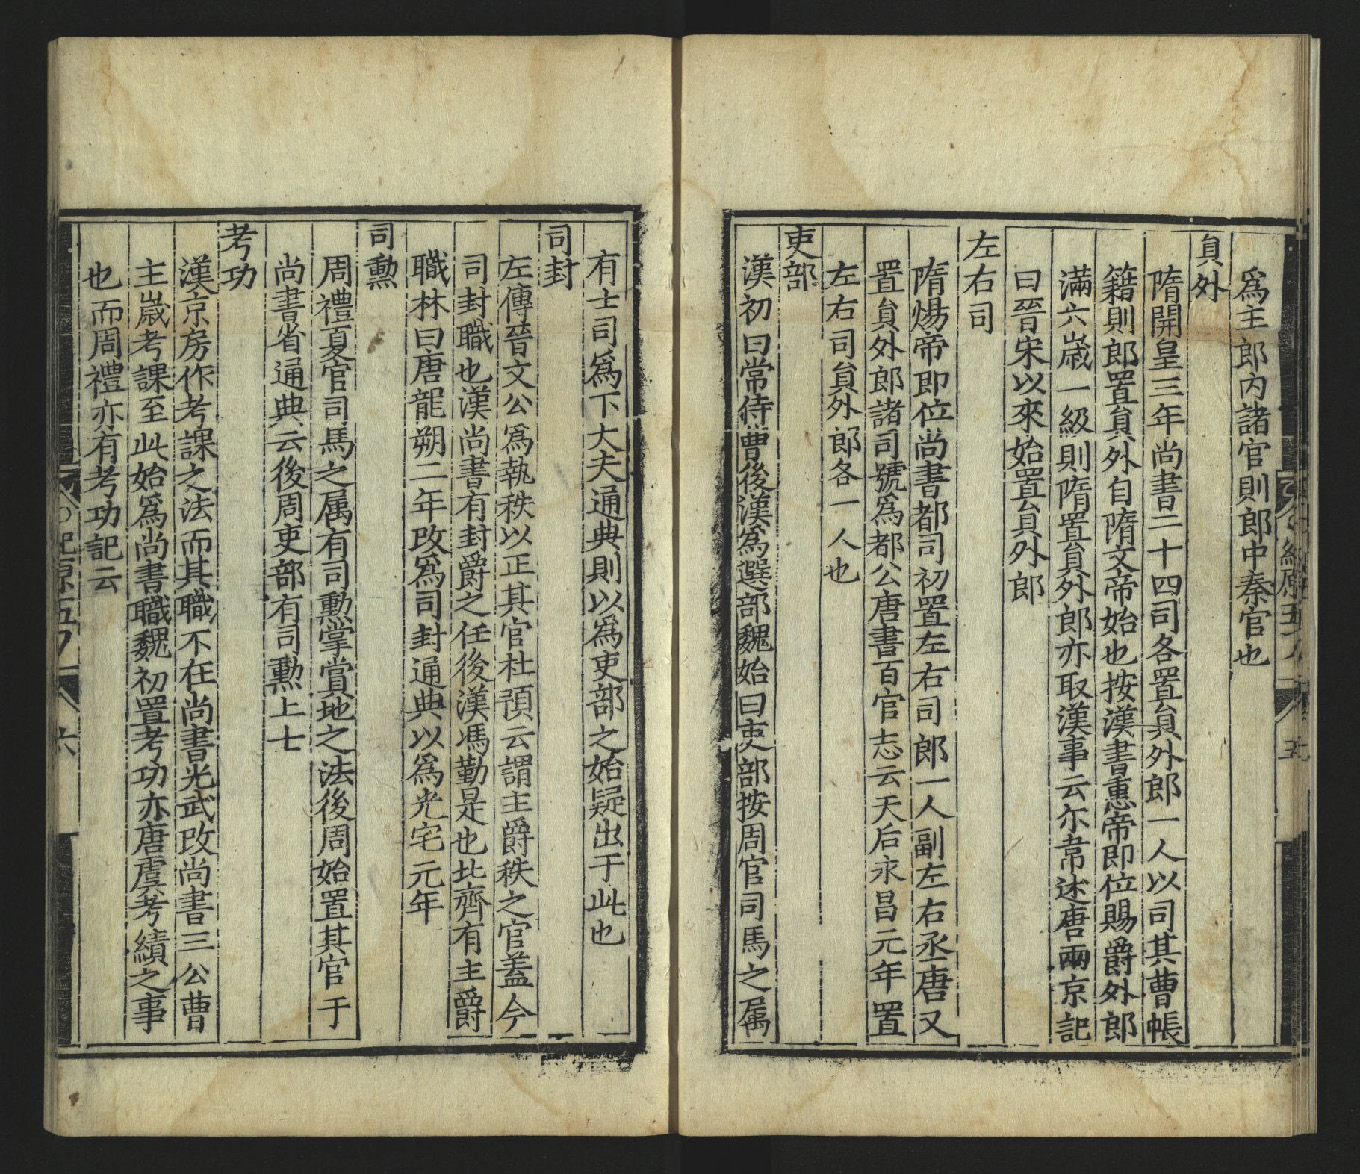 爲主郎内諸官則郎中秦官也
負外
隋開皇三年尚書二十四司各置負外郎一人以司其曹帳
籍則郎置負外自隋文帝始也按漢書惠帝即位賜爵外郎
滿六歲一級則隋置負外郎亦取漢事云尓韋述唐兩京記
曰晉宋以來始置負外郎
左右司
隋煬帝即位尚書都司初置左右司郎一人副左右丞唐又
置負外郎諸司號爲都公唐書百官志云天后永昌元年置
左右司負外郎各一人也
吏部
漢初曰常侍曹後漢爲選部魏始曰吏部按周官司馬之屬
有士司爲下大夫通典則以爲吏部之始疑出于此也
司封
左傳晉文公爲執秩以正其官杜預云謂主爵秩之官盖今
司封職也漢尚書有封爵之任後漢馮勤是也北齊有主爵
職林曰唐龍朔二年改爲司封通典以爲光宅元年
司勳
周禮夏官司馬之属有司勲掌賞地之法後周始置其官于
尚書省通典云後周吏部有司勲上七
考功
漢京房作考課之法而其職不在尚書光武改尚書三公曹
主歲考課至此始爲尚書職魏初置考功亦唐虞考績之事
也而周禮亦有考功記云
紀原五
六